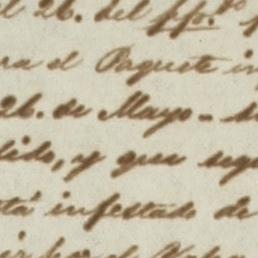 el 26. del ppo.
ra el Paquete in
26. de Mayo - 
dido, y que segu
tá infestado de